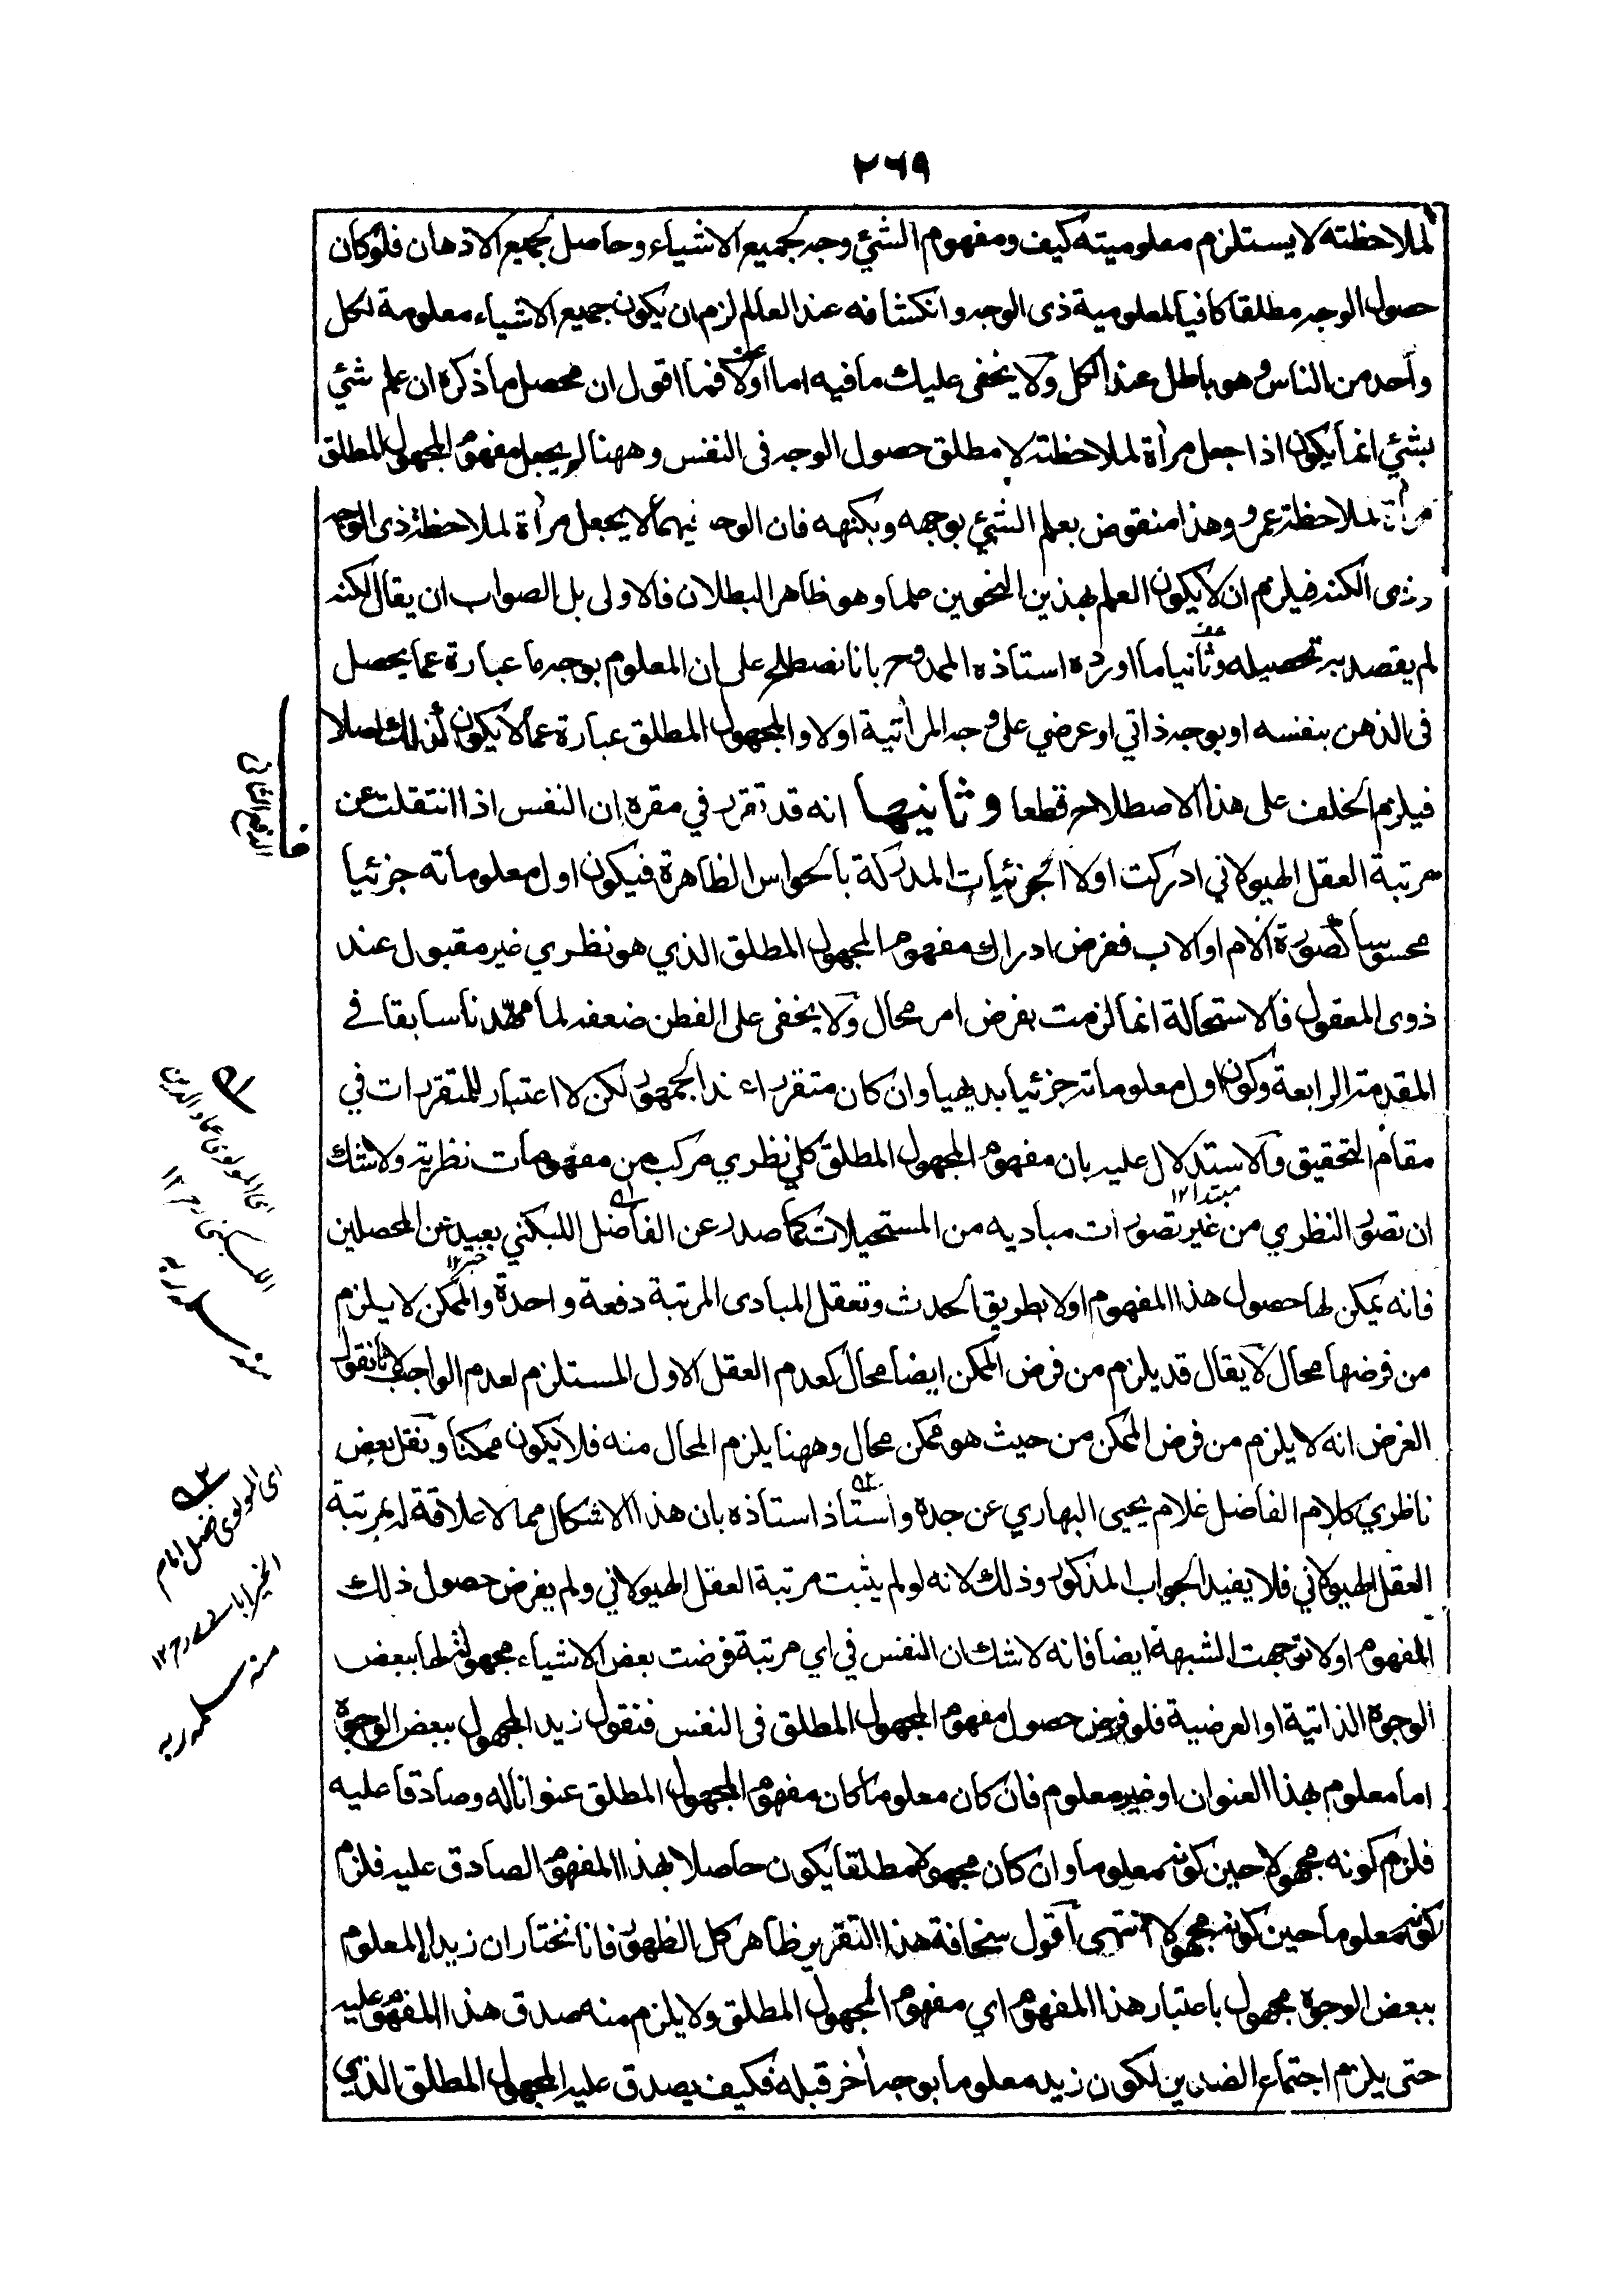 ٢٦٩
لملاحظته لا يستلزم معلوميته كيف ومفهوم الشئي وجه لجميع الاشياء وحاصل لجميع الاذهان فلو كان
حصول الوجه مطلقا كافيا لمعلومية ذى الوجه وانكشافه عند العالم لزم ان يكون جميع الاشياء معلومة لكل
واحد من الناس وهو باطل عند الكل ولا يخفى عليك ما فيه اما اولا فما اقول ان محصل ما ذكره ان علم شئي
بشئي انما يكون اذا جعل مرأة لملاحظته لا مطلق حصول الوجه فى النفس وههنا لم يجعل مفهوم المجهول المطلق
مرأة لملاحظة عمرو وهذا منقوض بعلم الشئي بوجهه وبكنهه فان الوجه فيهما لا يجعل مرأة لملاحظة ذى الوجه
وذى الكنه فيلزم ان لا يكون العلم بهذين النحوين علما وهو ظاهر البطلان فالاولى بل الصواب ان يقال لكنه
لم يقصد به تحصيله وثانيا ما اورده استاذه الممدوح بانا نصطلح على ان المعلوم بوجه ما عبارة عما يحصل
فى الذهن بنفسه او بوجه ذاتي او عرضي على وجه المرأتية اولا والمجهول المطلق عبارة عما لا يكون كذلك اصلا
فيلزم الخلف على هذا الاصطلاح قطعا وثانيها انه قد تقرر في مقره ان النفس اذا انتقلت عن
مرتبة العقل الهيولاني ادركت اولا الجزئيات المدركة بالحواس الظاهرة فيكون اول معلوماته جزئيا
محسوسا كصورة الام او الاب ففرض ادراك مفهوم المجهول المطلق الذي هو نظري غير مقبول عند
ذوى المعقول فالاستحالة انما لزمت بفرض امر محال ولا يخفى على الفطن ضعفه لما مهدنا سابقا في
المقدمة الرابعة وكون اول معلوماته جزئيا بديهيا وان كان متقررا عند الجمهور لكن لا اعتبار للمتقررات في
مقام التحقيق والاستدلال عليه بان مفهوم المجهول المطلق كلي نظري مركب من مفهومات نظرية ولا شك
مبتدا ١٢
ان تصور النظري من غير تصورات مباديه من المستحيلات كما صدر عن الفاضل اللبكني بعيد عن المحصلين
خبر ١٢
فانه يمكن لها حصول هذا المفهوم اولا بطريق الحدث وتعقل المبادى المرتبة دفعة واحدة والممكن لا يلزم
من فرضها محال لا يقال قد يلزم من فرض الممكن ايضا محال كعدم العقل الاول المستلزم لعدم الواجب لانا نقول
الغرض انه لا يلزم من فرض الممكن من حيث هو ممكن محال وههنا يلزم المحال منه فلا يكون ممكنا ونقل بعض
ناظري كلام الفاضل غلام يحيى البهاري عن جده واستاذ استاذه بان هذا الاشكال مما لا علاقة له بمرتبة
العقل الهيولاني فلا يفيد الجواب المذكور وذلك لانه لو لم يثبت مرتبة العقل الهيولاني ولم يفرض حصول ذلك
المفهوم اولا توجهت الشبهة ايضا فانه لا شك ان النفس في اي مرتبة فرضت بعض الاشياء مجهولة لها ببعض
الوجوه الذاتية او العرضية فلو فرض حصول مفهوم المجهول المطلق فى النفس فنقول زيد المجهول ببعض الوجوه
اما معلوم بهذا العنوان او غير معلوم فان كان معلوما كان مفهوم المجهول المطلق عنوانا له وصادقا عليه
فلزم كونه مجهولا حين كونه معلوما وان كان مجهولا مطلقا يكون حاصلا بهذا المفهوم الصادق عليه فلزم
كونه معلوما حين كونه مجهولا انتهى اقول سخافة هذا التقرير ظاهر كل الظهور فانا نختار ان زيدا المعلوم
ببعض الوجوه مجهول باعتبار هذا المفهوم اي مفهوم المجهول المطلق ولا يلزم منه صدق هذا المفهوم عليه
حتى يلزم اجتماع الضدين لكون زيد معلوما بوجه أخر قبله فكيف يصدق عليه المجهول المطلق الذي
الدفع الثاني
اى المولوى عماد الدين
اللبكنى ١٢
منه سلمه ربه
اى المولوى فضل امام
الخيرابادى ١٢
منه سلمه ربه